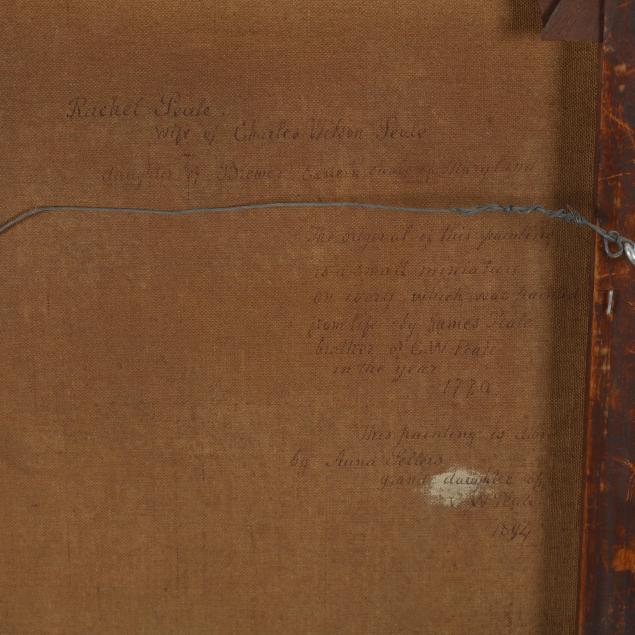 Rachel Peale.
Wife of Charles Willson Peale
daughter of Brewer Eastern Shore of Maryland
The original of this painting
is a small miniature
on ivory, which was painted
from life by James Peale
brother of C W Peale
in the year
1770
This painting is done
by Anna Sellers
grand daughter of
C W Peale
1894